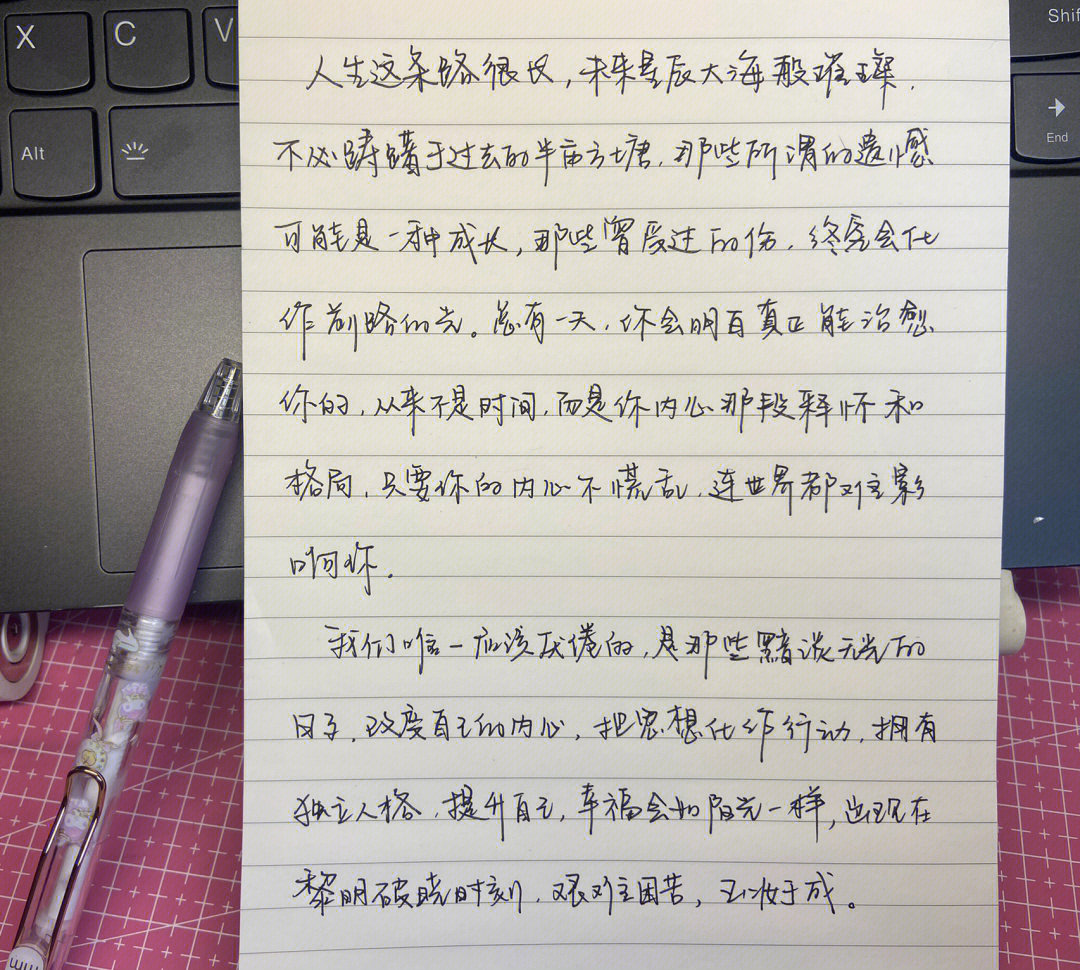 X
C
V
Shif
Alt
End
人生这条路很长，未来星辰大海般璀璨，
不必踌躇于过去的半亩方塘，那些所谓的遗憾
可能是一种成长，那些曾受过的伤，终究会化
作前路的光。总有一天，你会明白真正能治愈
你的，从来不是时间，而是你内心那段释怀和
格局，只要你的内心不慌乱，连世界都难影
响你．
我们唯一应该厌倦的，是那些黯淡无光的
日子，改变自己的内心，把思想化作行动，拥有
独立人格，提升自己，幸福会如阳光一样，出现在
黎明破晓时刻，艰难困苦，玉汝于成。